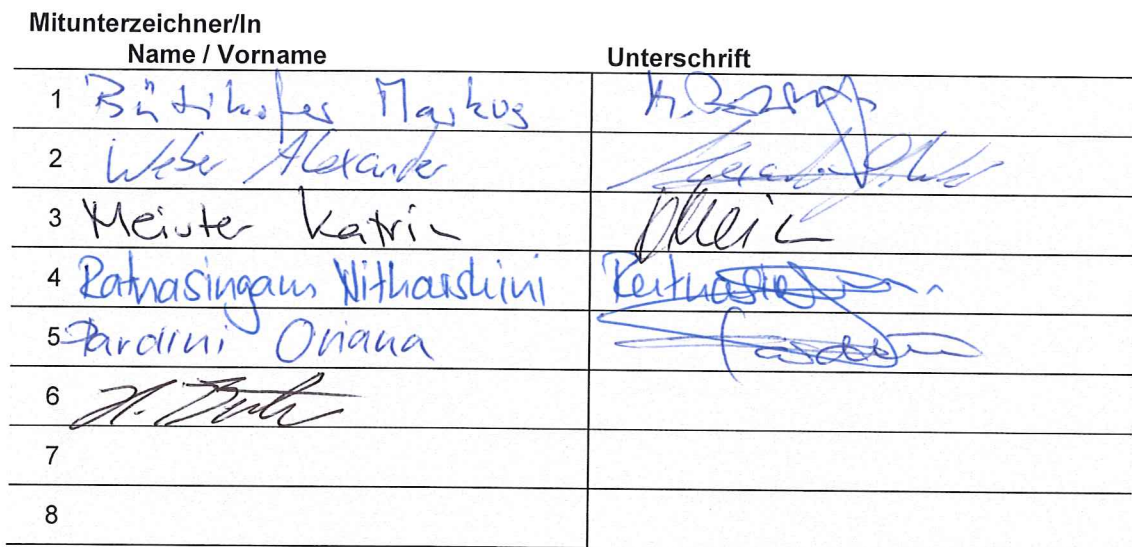 Mitunterzeichner/In
Name / Vorname Unterschrift
1 Bütikofer Markus
2 Weber Alexander
3 Meister Katrin
4 Ratnasingam Witharshini
5 Pardini Oriana
6
7
8